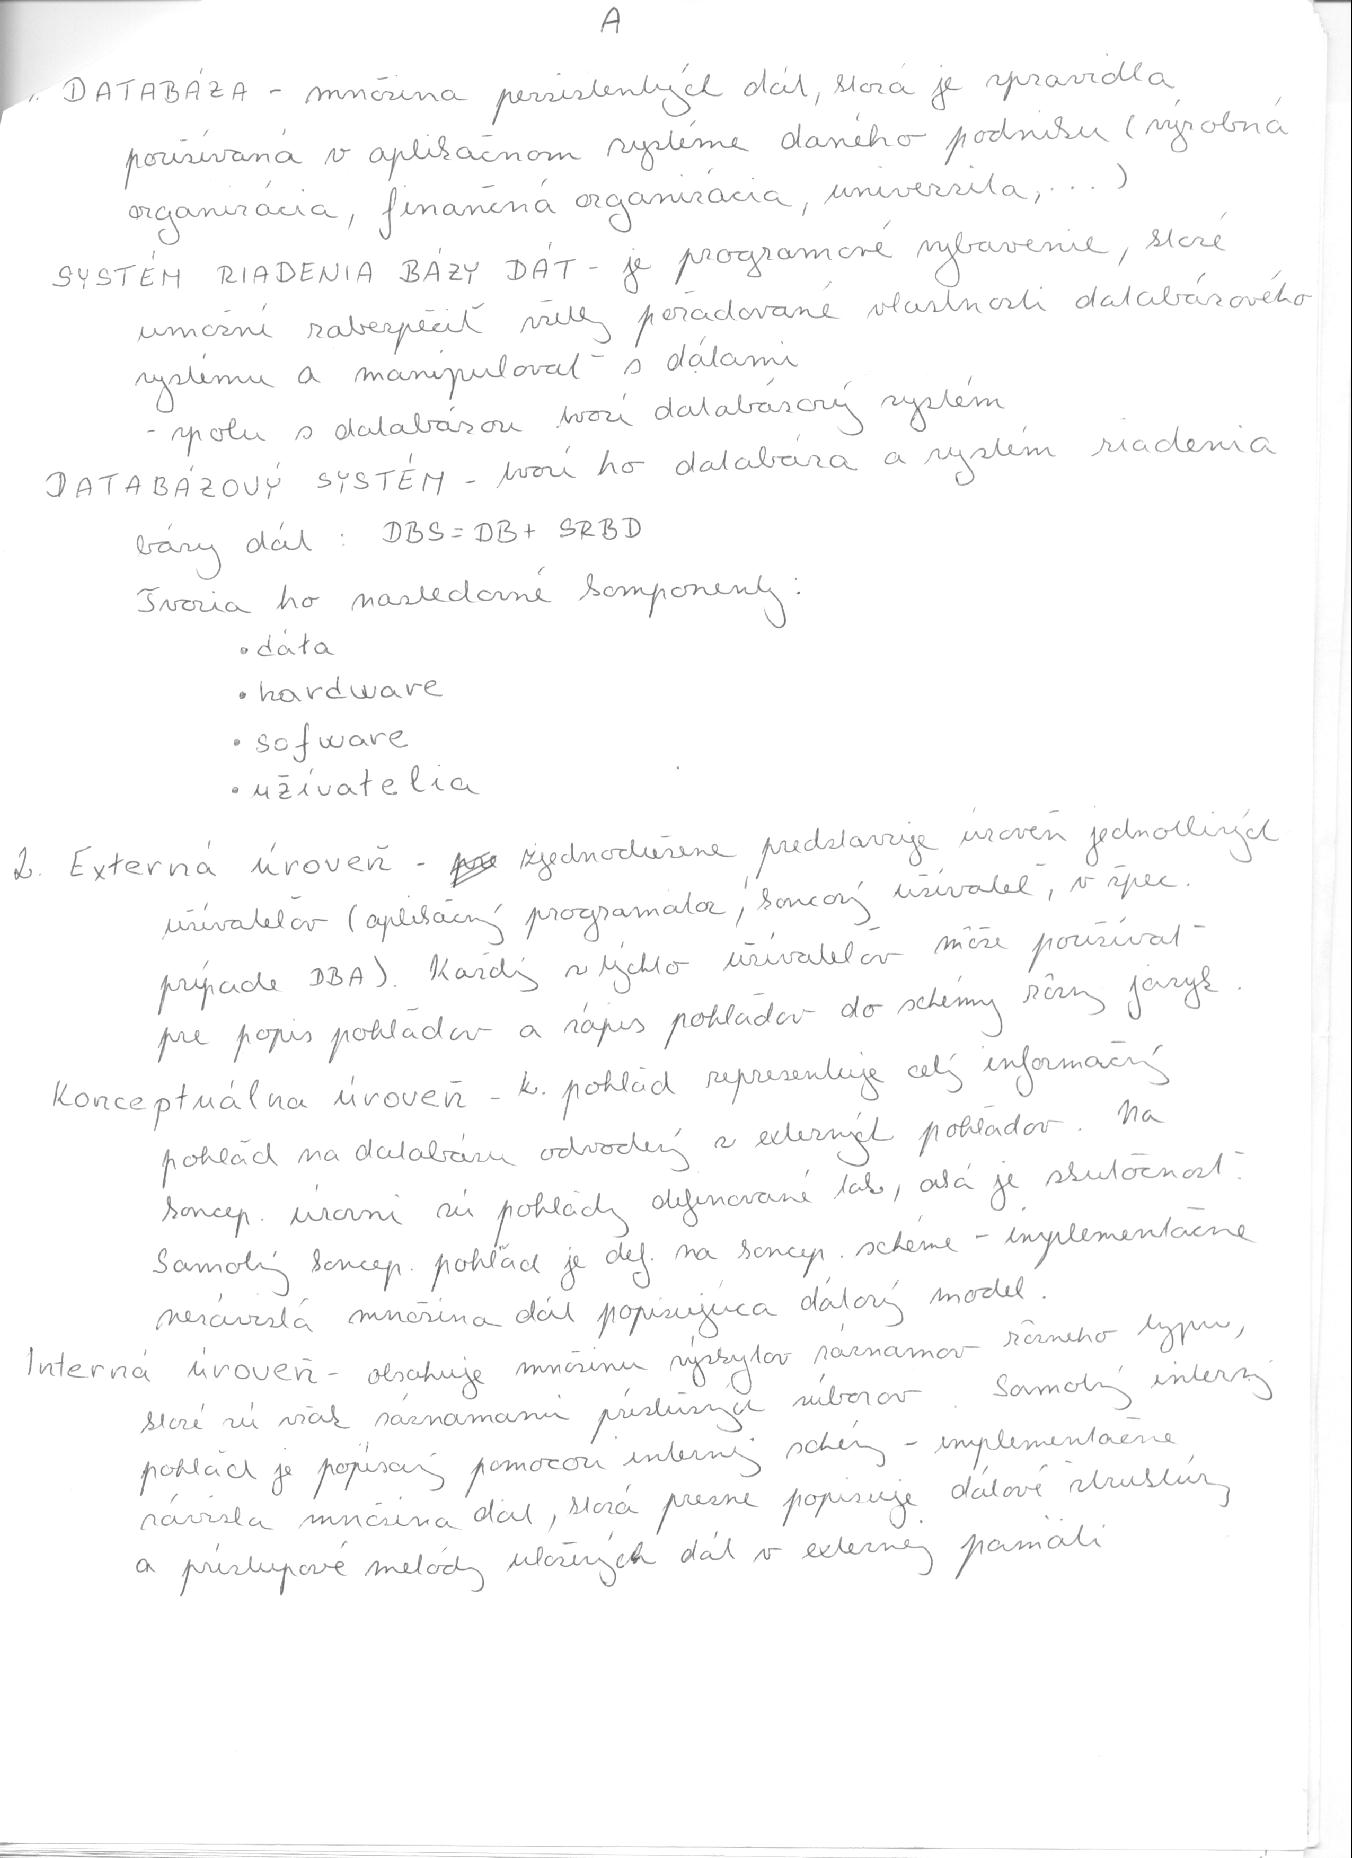 A
1. DATABÁZA - množina perzistentných dát, ktorá je spravidla
používaná v aplikačnom systéme daného podniku (výrobná
organizácia, finančná organizácia, univerzita, ...)
SYSTÉM RIADENIA BÁZY DÁT - je programové vybavenie, ktoré
umožní zabezpečiť všetky požadované vlastnosti databázového
systému a manipulovať s dátami
- spolu s databázou tvorí databázový systém
DATABÁZOVÝ SYSTÉM - tvorí ho databáza a systém riadenia
bázy dát : DBS = DB + SRBD
Tvoria ho nasledovné komponenty:
• dáta
• hardware
• sofware
• užívatelia
2. Externá úroveň - zjednodušene predstavuje úroveň jednotlivých
užívateľov (aplikačný programátor, koncový užívateľ, v špec.
prípade DBA). Každý z týchto užívateľov môže používať
pre popis pohľadov a zápis pohľadov do schémy rôzny jazyk.
Konceptuálna úroveň - k. pohľad reprezentuje celý informačný
pohľad na databázu odvodený z externých pohľadov. Na
koncep. úrovni sú pohľady definované tak, aká je skutočnosť.
Samotný koncep. pohľad je def. na koncep. schéme - implementačne
nezávislá množina dát popisujúca dátový model.
Interná úroveň - obsahuje množinu výskytov záznamov rôzneho typu,
ktoré sú však záznamami príslušných súborov. Samotný interný
pohľad je popísaný pomocou internej schémy - implementačne
závislá množina dát, ktorá presne popisuje dátové štruktúry
a prístupové metódy uložených dát v externej pamäti